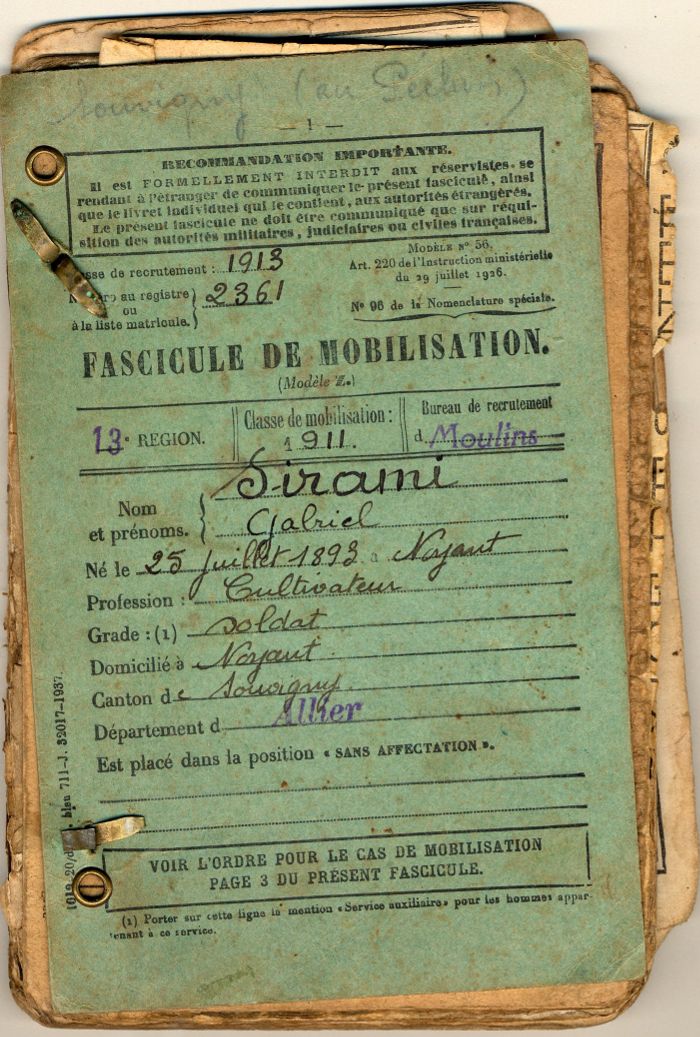 Souvigny (au
— 1 —
RECOMMANDATION IMPORTANTE.
Il est FORMELLEMENT INTERDIT aux réservistes se
rendant à l'étranger de communiquer le présent fascicule, ainsi
que le livret individuel qui le contient, aux autorités étrangères.
Le présent fascicule ne doit être communiqué que sur réqui-
sition des autorités militaires, judiciaires ou civiles françaises.
sse de recrutement : 1913
MODÈLE N° 56.
Art. 220 de l'Instruction ministérielle
du 29 juillet 1926.
N° 96 de la Nomenclature spéciale.
N ro au registre
ou
à la liste matricule. } 2361
FASCICULE DE MOBILISATION.
(Modèle Z.)
13e RÉGION.
Classe de mobilisation :
1911.
Bureau de recrutement
d Moulins
Nom
et prénoms. { Sirami
Gabriel
Né le 25 juillet 1893 à Noyant
Profession : Cultivateur
Grade : (1) soldat
Domicilié à Noyant
Canton de Souvigny
Département d Allier
Est placé dans la position « SANS AFFECTATION ».
VOIR L'ORDRE POUR LE CAS DE MOBILISATION
PAGE 3 DU PRÉSENT FASCICULE.
(1) Porter sur cette ligne la mention « Service auxiliaire » pour les hommes appar-
tenant à ce service.
bleu 711-J. 32017-1937.